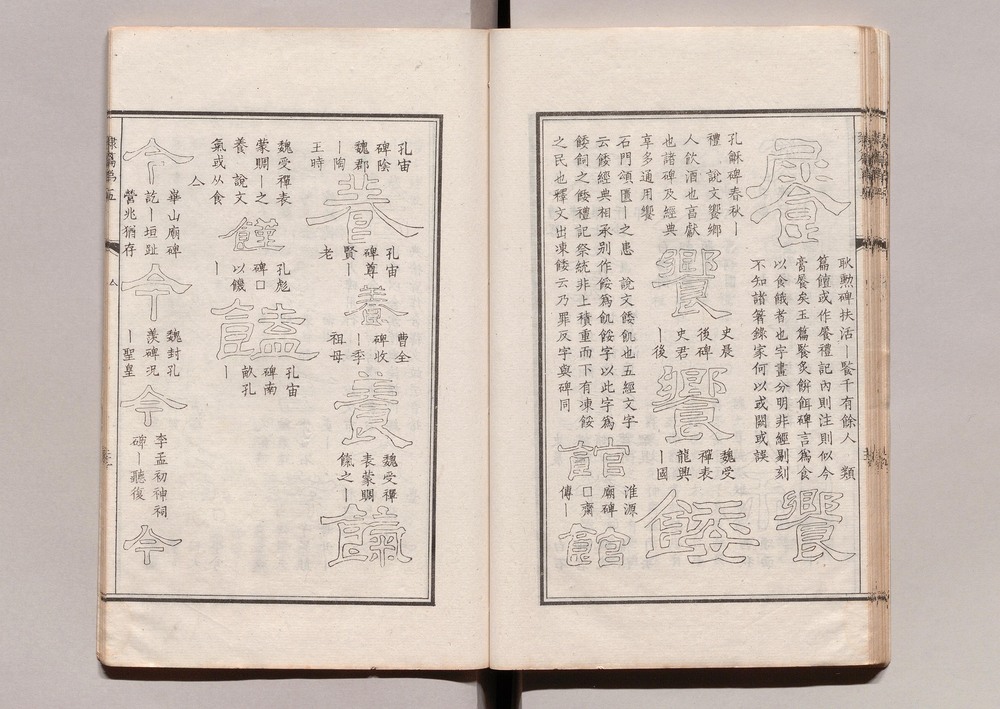 耿勳碑扶活丨餐千有餘人 類
篇饘或作餐禮記內則注則似今
膏𩜾矣玉篇餐炙餅餌碑言為食
以食餓者也字畫分明非經剔刻
不知諸箸錄家何以或闕或誤
饗
孔龢碑春秋丨
禮 說文饗鄉
人飲酒也言獻
也諸碑及經典
享多通用饗
饗
史晨
後碑
史君
丨後
饗
魏受
禪表
龍興
丨國
餧
石門頌匱丨之患 說文餧飢也五經文字
云餧經典相承别作餒為飢餒字以此字為
餧飼之餧禮記祭統非上積重而下有凍餒
之民也釋文出凍餧云乃罪反字與碑同
館
淮源
廟碑
□齋
傳丨
館
孔宙
碑陰
魏郡
丨陶
王時
養
孔宙
碑尊
賢丨
老
養
曹全
碑收
丨季
祖母
養
魏受禪
表蒙賜
餼之丨
餼
魏受禪表
蒙賜丨之
養 說文
氣或从食
饉
孔彪
碑□
以饑
丨
饁
孔宙
碑南
畝孔
丨
亼
今
華山廟碑
訖丨垣趾
營兆猶存
今
魏封孔
羨碑況
丨聖皇
今
李孟初神祠
碑丨聽復
今